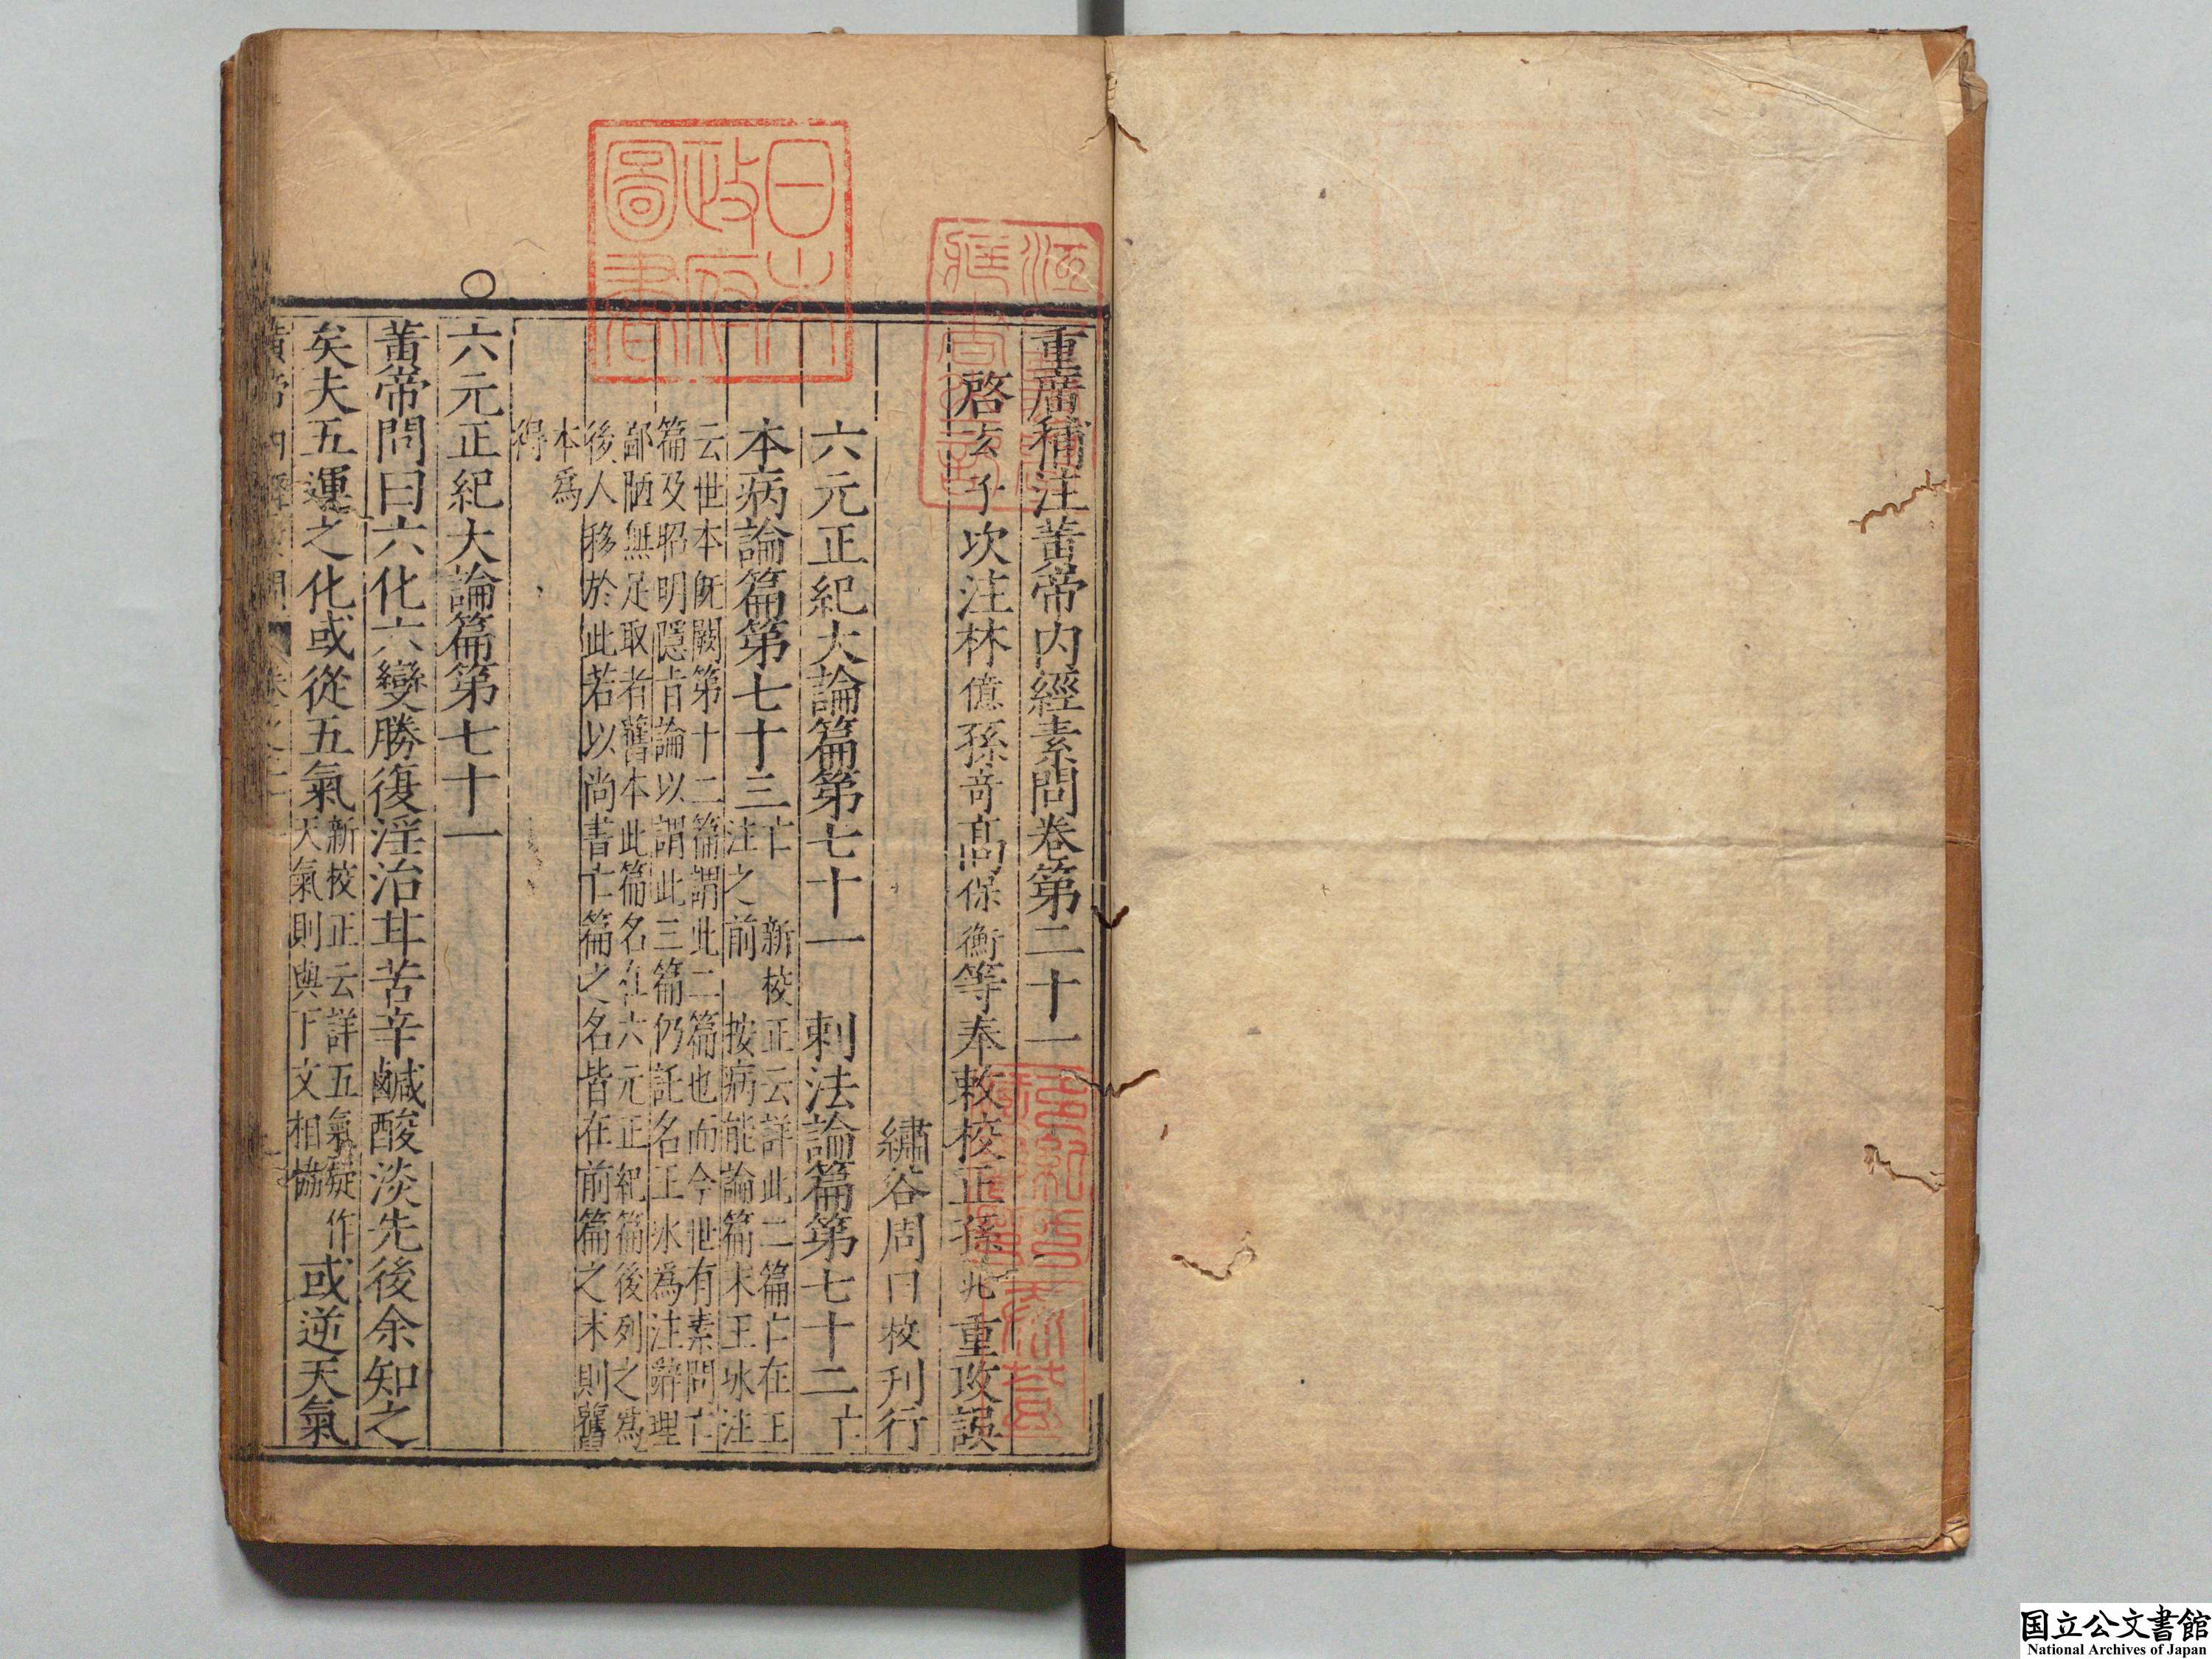 重廣補注黃帝内經素問卷第二十一
啓玄子次注林億孫竒髙保衡等奉敕校正孫兆重改誤
繡谷周曰校刋行
六元正紀大論篇第七十一 刺法論篇第七十二亡
本病論篇第七十三亡 新校正云詳此二篇亡在王
注之前 按病能論篇末王氷注
云世本既闕第十二篇謂此二篇也而今世有素問亡
篇及昭明隱旨論以謂此三篇仍託名王氷爲注辭理
鄙陋無足取者舊本此篇名在六元正紀篇後列之爲
後人移於此若以尚書亡篇之名皆在前篇之末則舊
本爲
得
六元正紀大論篇第七十一
黃帝問曰六化六變勝復淫治甘苦辛鹹酸淡先後余知之
矣夫五運之化或從五氣 新校正云詳五氣疑作
天氣則與下文相協 或逆天氣
日本
政府
圖書
国立公文書館
National Archives of Japan